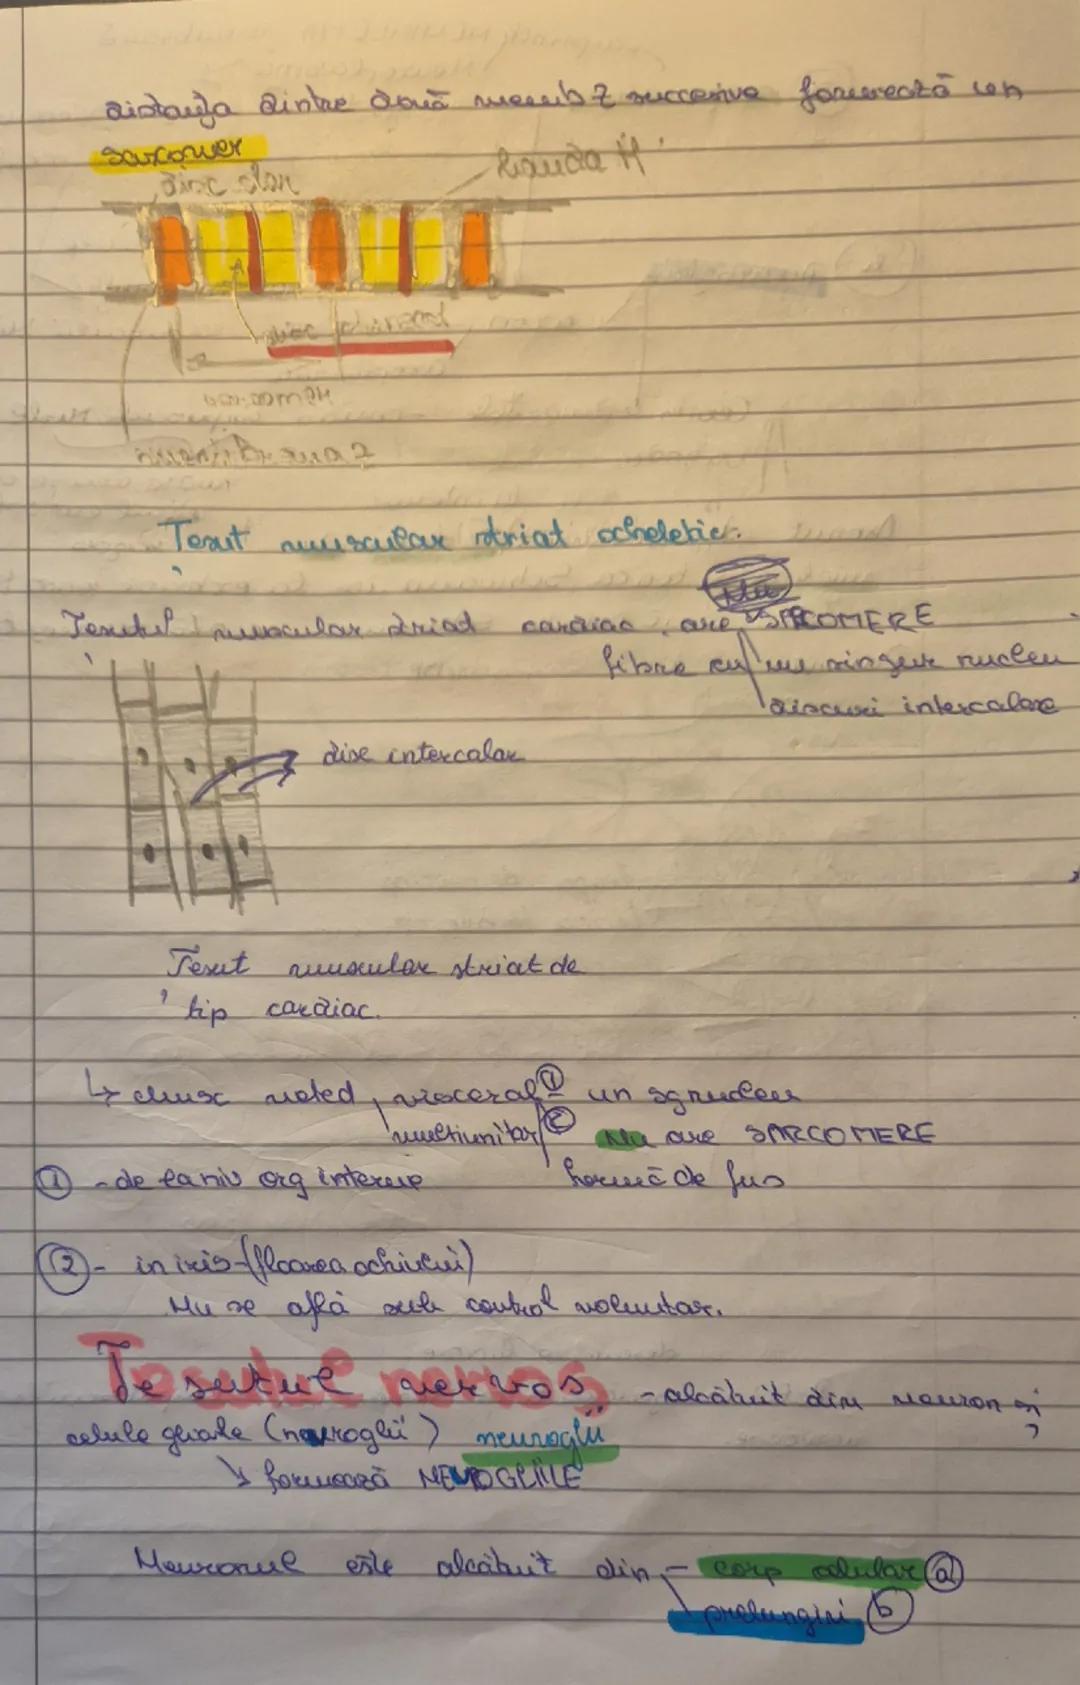 Distanța dintre două memb Z succesive formează un
sarcomer
disc clar
banda H
disc întunecat
sarcomer
membrana Z
Țesut muscular striat scheletic.
Țesutul muscular striat cardiac, are SARCOMERE
fibre cu un singur nucleu
discuri intercalare
disc intercalar
Țesut muscular striat de
tip cardiac.
↳ Musc neted, visceral ① un sg nucleu
multiunitar ② Nu are SARCOMERE
① - de la niv org interne
formă de fus
② - in iris - (floarea ochiului)
Nu se află sub control voluntar.
Țesutul nervos - alcătuit din neuron și
celule gliale (nevroglii) nevroglii
↘ formează NEVROGLIILE
Neuronul este alcătuit din - corp celular ⓐ
prelungiri ⓑ